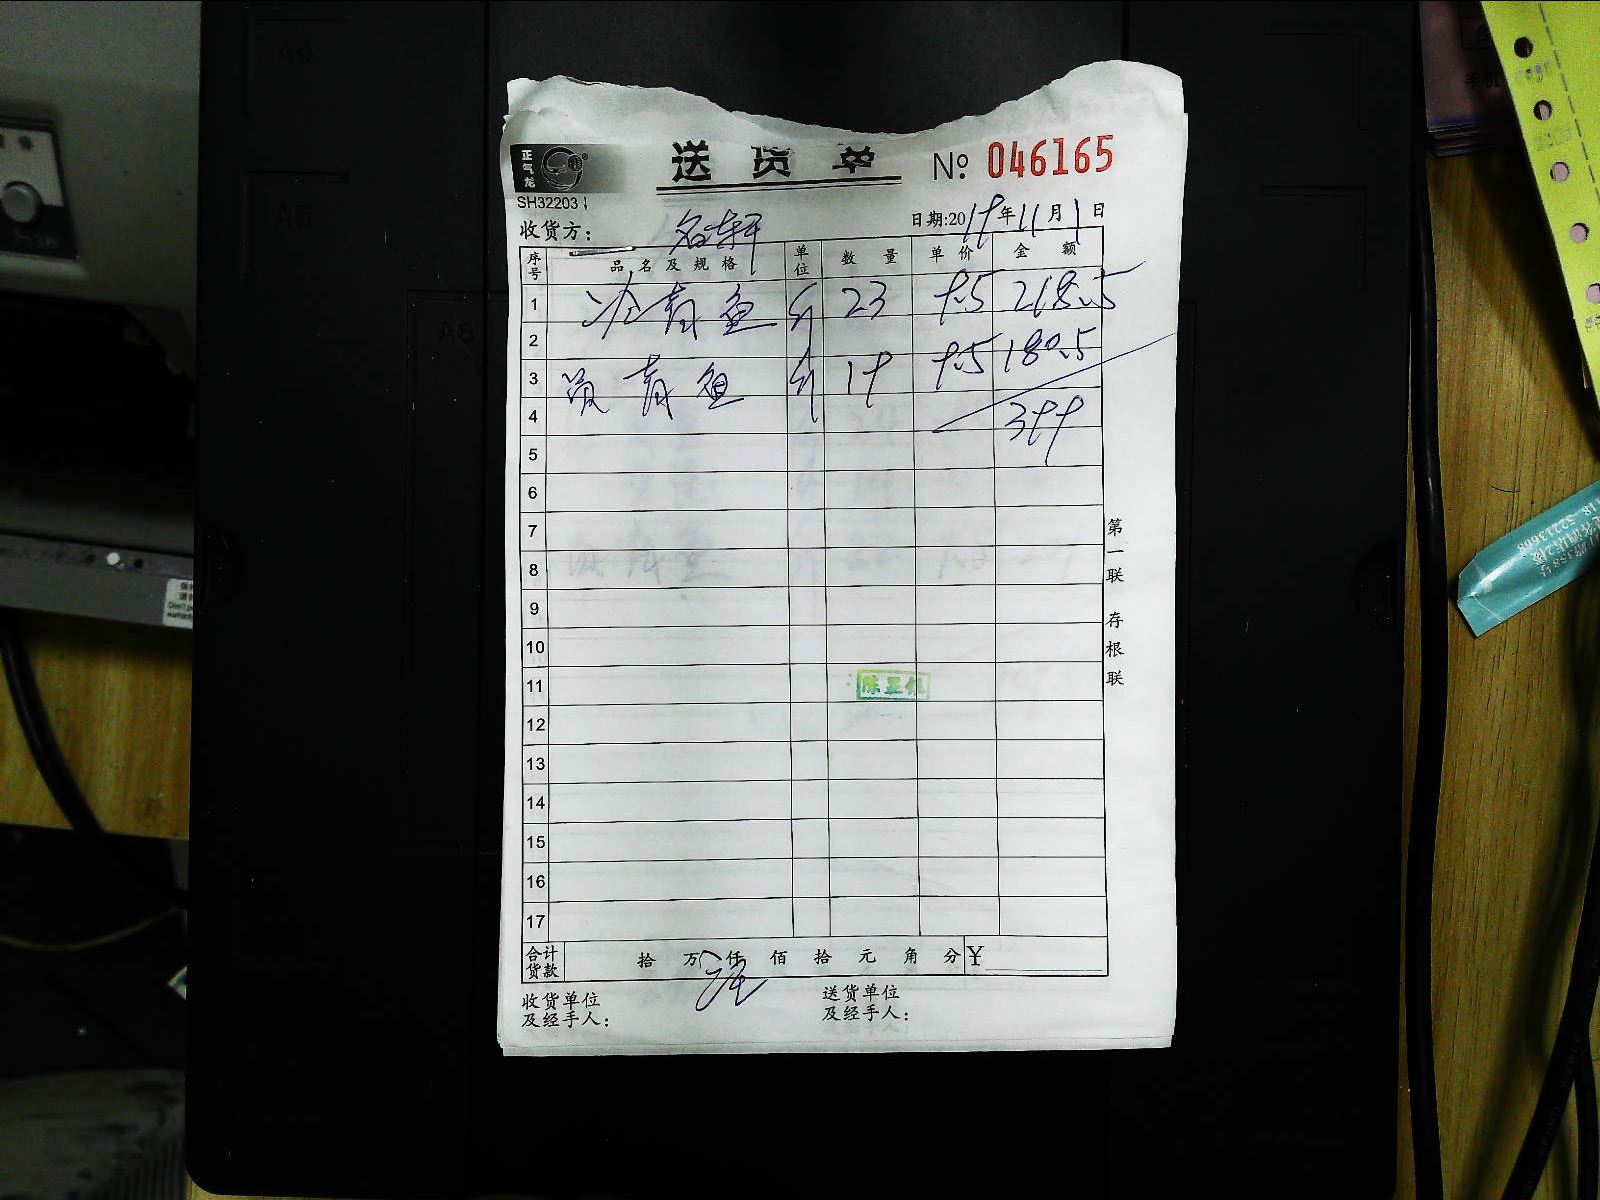 正气龙
送货单 No 046165
SH32203
收货方: 名轩 日期:2019年11月1日
序号 品名及规格 单位 数量 单价 金额
1 冷青鱼 斤 23 9.5 218.5
2
3 青鱼 斤 19 9.5 180.5
4 399
5
6
7
8
9
10
11
12
13
14
15
16
17
第一联 存根联
合计货款 拾 万 仟 佰 拾 元 角 分 ¥
收货单位及经手人:
送货单位及经手人: